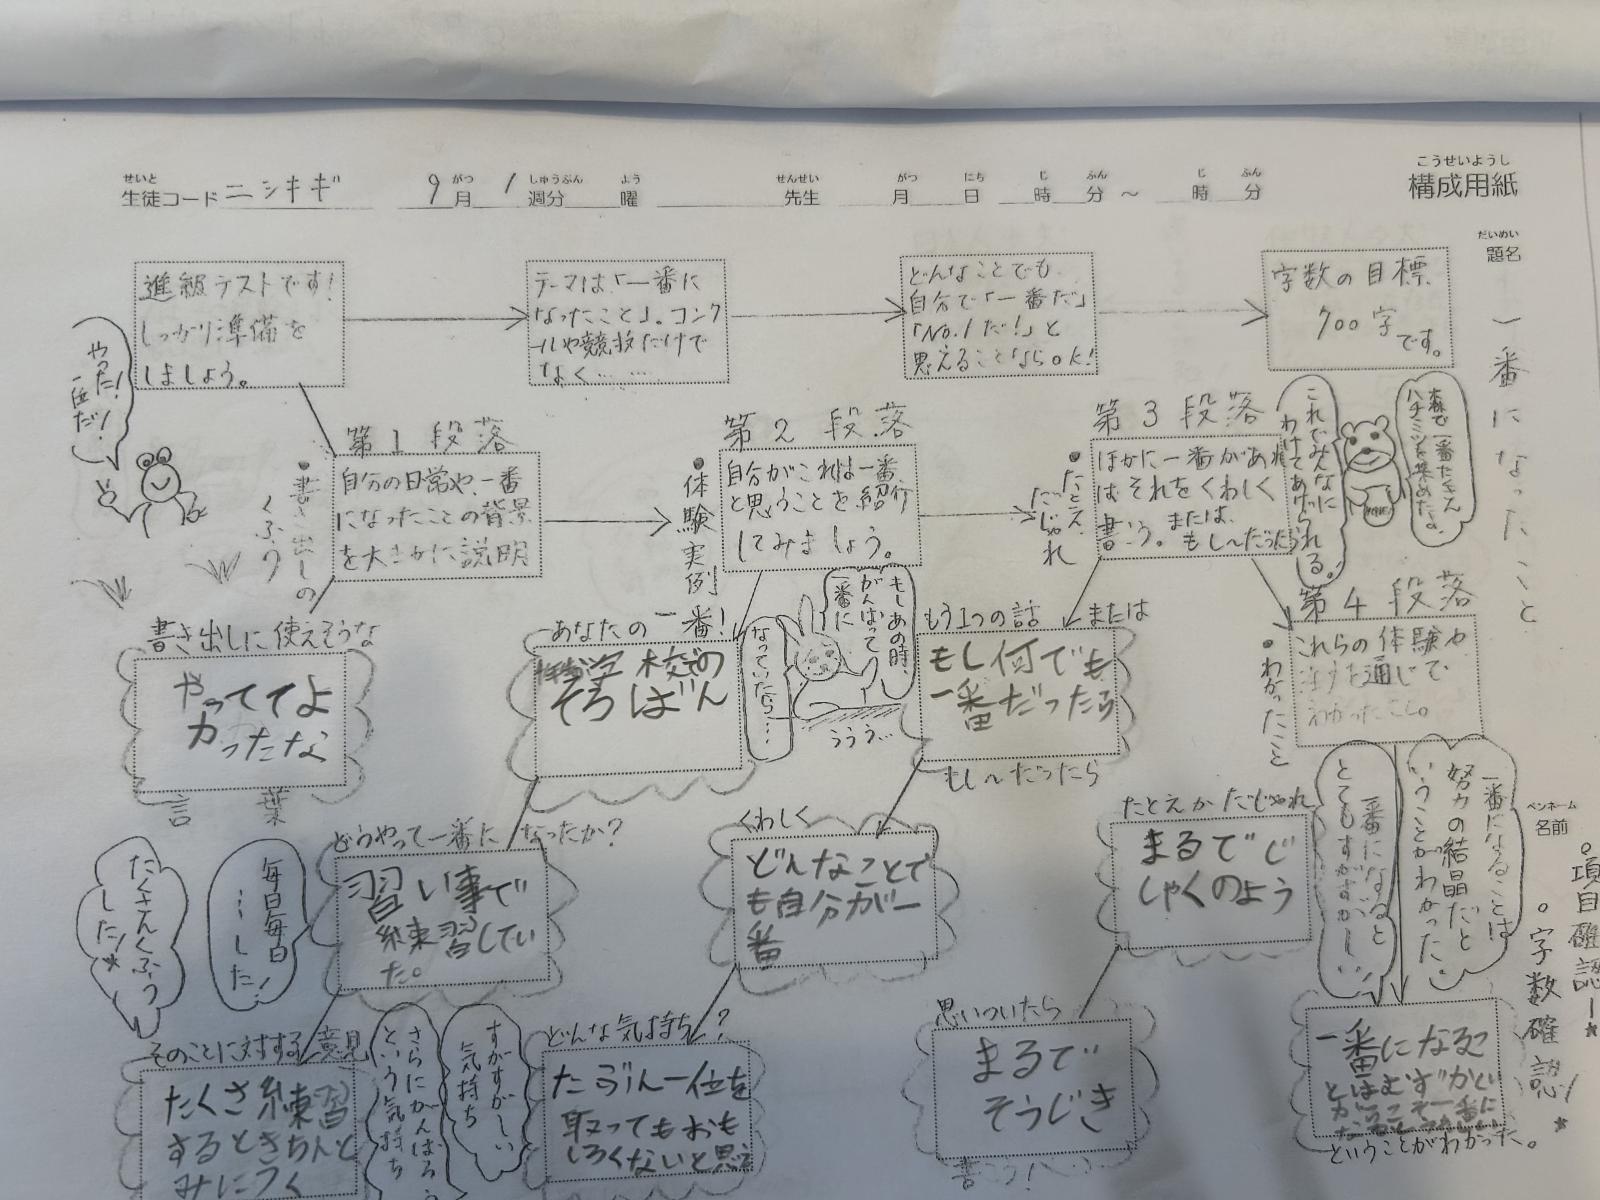 こうせいようし
構成用紙
せいと がつ しゅうぶん よう せんせい がつ にち じ ふん じ ふん
生徒コード ニシキギ 9月 1週分 曜 先生 月 日 時 分 ~ 時 分
だいめい
題名
一番になったこと
進級テストです!
しっかり準備を
しましょう。
テーマは、「一番に
なったこと」。コンク
ールや競技だけで
なく……
どんなことでも
自分で「一番だ」
「No.1だ!」と
思えることならOK!
字数の目標
700字
です。
やった!
一位だ!
第1段落
自分の日常や、一番
になったことの背景
を大まかに説明
・書き出しの
くふう
第2段落
自分がこれは一番
と思うことを紹介
してみましょう。
・体験実例
第3段落
ほかに一番があれ
ば、それをくわしく
書こう。または、
もし〜だったら
・たとえ
だじゃれ
これでみんなに
わけてあげられる。
森で一番たくさん
ハチミツを集めたよ。
第4段落
これらの体験や
を通じて
わかったこと。
・わかったこと
書き出しに使えそうな
やっててよ
かったな
言葉
あなたの一番!
学校での
そろばん
もしあの時、
がんばって、
一番に
なっていたら…
ううう…
もう1つの話 または
もし何でも
一番だったら
もし〜だったら
どうやって一番になったか?
習い事で
練習してい
た。
毎日毎日
…した!
たくさんくふう
した!
くわしく
どんなことで
も自分が一
番
たとえかだじゃれ
まるでじ
しゃくのよう
一番になると
とてもすがすがしい
一番になることは
努力の結晶だと
いうことがわかった。
ペンネーム
名前
。項目確認!
。字数確認!
そのことに対する意見
たくさ練習
するときちんと
みにつく
さらにがんばろう
という気持ち
すがすがしい
気持ち
どんな気持ち?
たぶん一位を
取ってもおも
しろくないと思う
思いついたら
まるで
そうじき
書こう!
一番になるこ
とはむずかしい
からこそ一番に
ということがわかった。